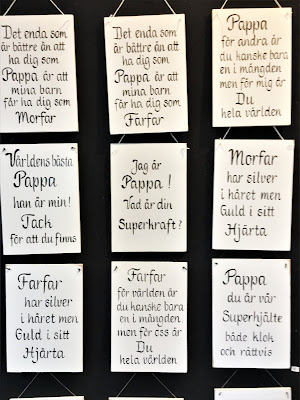 Det enda som
är bättre än att
ha dig som
Pappa är att
mina barn
får ha dig som
Morfar
Det enda som
är bättre än att
ha dig som
Pappa är att
mina barn
får ha dig som
Farfar
Pappa
för andra är
du kanske bara
en i mängden
men för mig är
Du
hela världen
Världens bästa
Pappa
han är min!
Tack
för att du finns
Jag är
Pappa!
Vad är din
Superkraft?
Morfar
har silver
i håret men
Guld i sitt
Hjärta
Farfar
har silver
i håret men
Guld i sitt
Hjärta
Farfar
för världen är
du kanske bara
en i mängden
men för oss är
Du
hela världen
Pappa
du är vår
Superhjälte
både klok
och rättvis